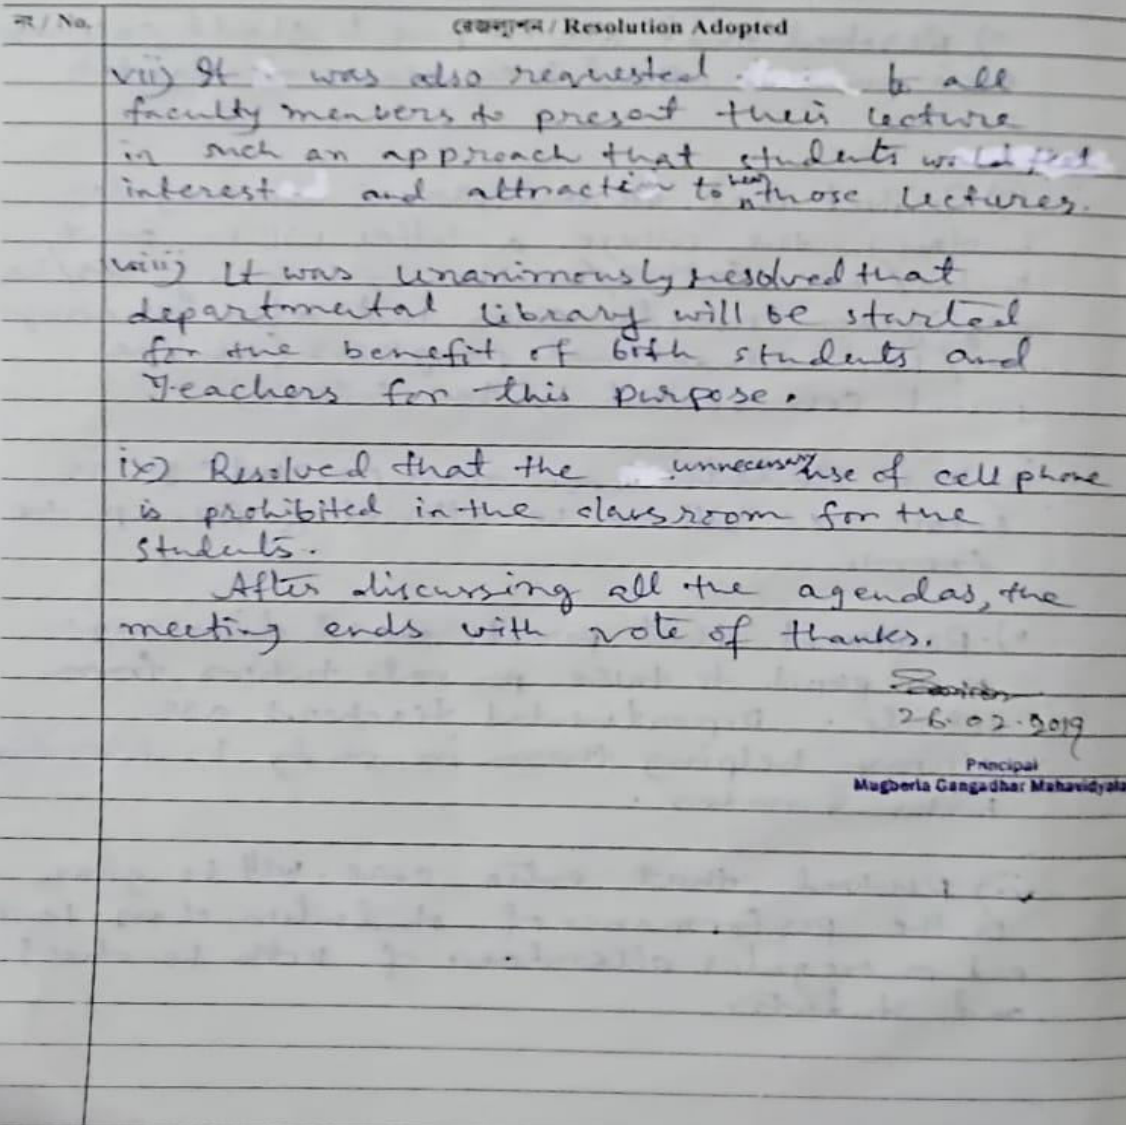 নং / No.
রেজল্যুশন / Resolution Adopted
vii) It was also requested to all
faculty members to present their lecture
in such an approach that students would feel
interest and attraction to hear those lectures.
viii) It was unanimously resolved that
departmental library will be started
for the benefit of both students and
Teachers for this purpose.
ix) Resolved that the unnecessary use of cell phone
is prohibited in the classroom for the
students.
After discussing all the agendas, the
meeting ends with vote of thanks.
26.02.2019
Principal
Mugberia Gangadhar Mahavidyala